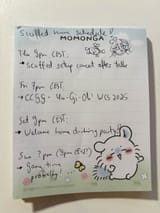 Scuffed Momo Schedule!!
MOMONGA
Thu 9pm CEST:
→ Scuffed setup comeat after talk
Fri 7pm CEST:
→ CCBS - Yu-Gi-Oh! WCS 2025
Sat 9pm CEST:
→ Welcome home drinking party!!
Sun ?pm (9pm CEST?)
→ Game time
probably!